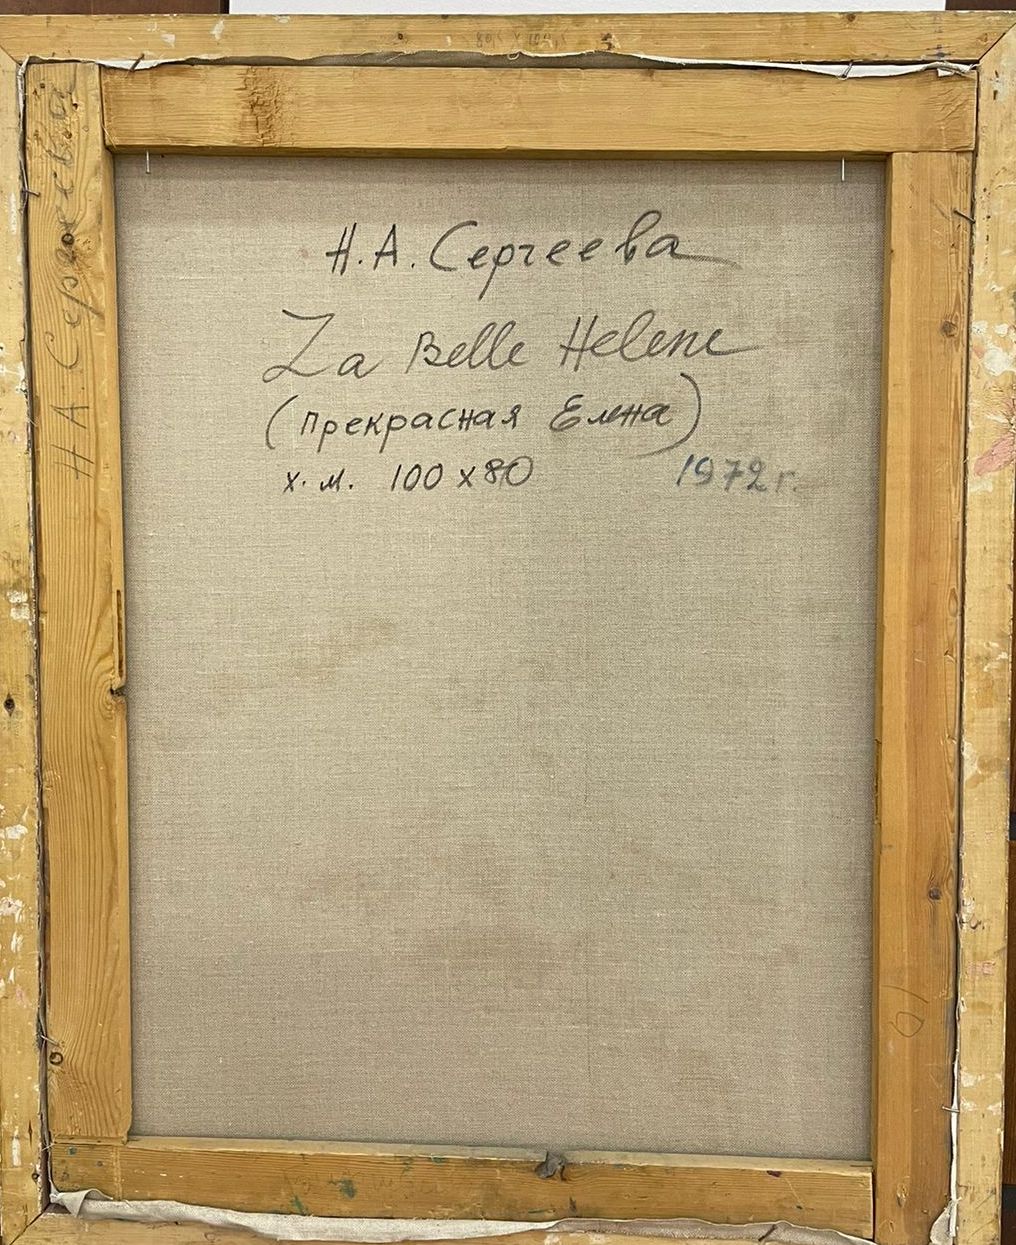 Н.А. Сергеева
La Belle Helene
(прекрасная Елена)
х.м. 100 х 80 1972 г.
Н.А. Сергеева